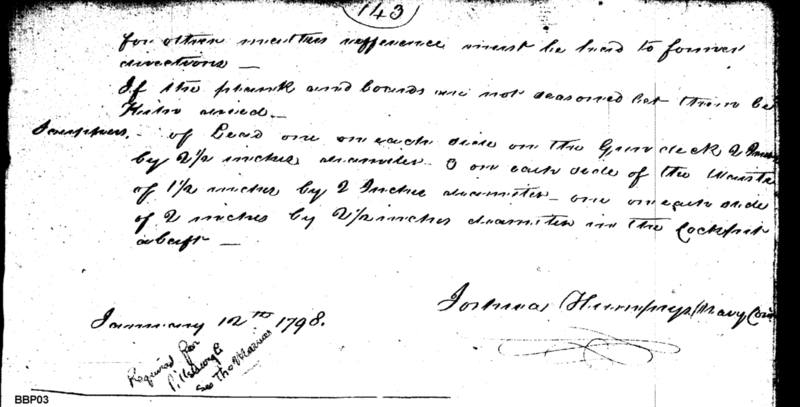 143
for other matters refference must be had to former
directions —
If the plank and boards are not seasoned let them be
Kiln dried —
Scuppers. - of Lead one on each side on the Gun deck 2 Inches
by 2½ inches diameter - 3 on each side of the Waiste
of 1½ inches by 2 Inches diameter - one on each side
of 2 inches by 2½ inches diameter in the Cockpit
abaft —
Joshua Humphrys Navy Con
January 12th 1798.
Required for
Pittsburgh
See Tho
BBP03